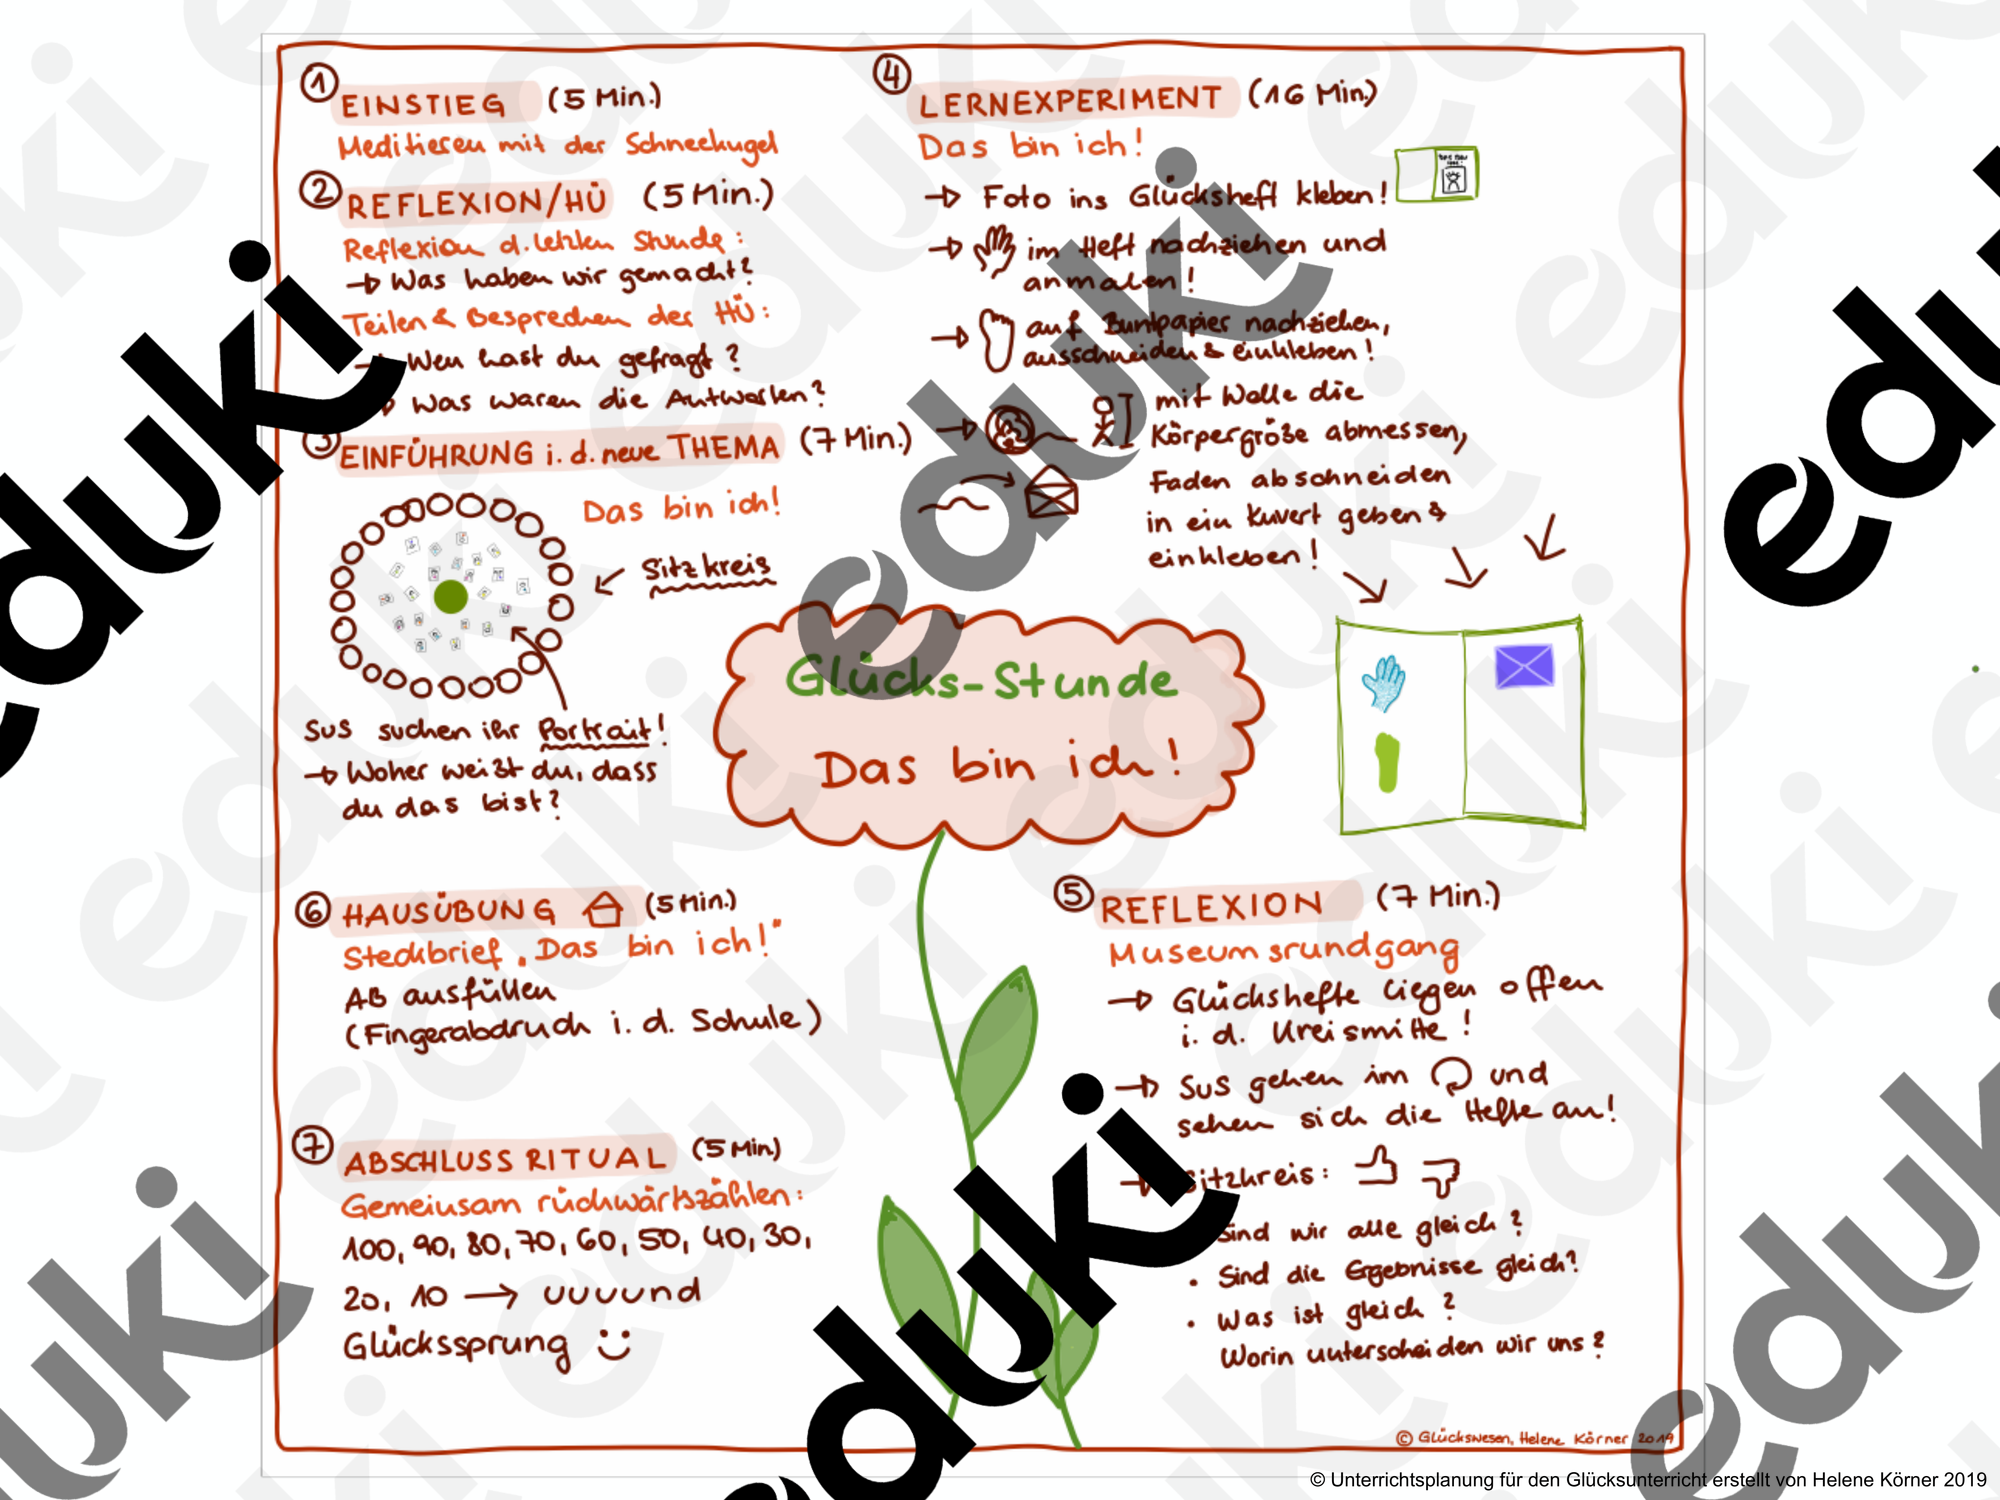 ① EINSTIEG (5 Min.)
Meditieren mit der Schneekugel
② REFLEXION/HÜ (5 Min.)
Reflexion d. letzten Stunde:
→ Was haben wir gemacht?
Teilen & Besprechen der HÜ:
→ Wen hast du gefragt?
Was waren die Antworten?
③ EINFÜHRUNG i. d. neue THEMA (7 Min.)
Das bin ich!
← Sitzkreis
SuS suchen ihr Portrait!
→ Woher weißt du, dass
du das bist?
④ LERNEXPERIMENT (16 Min.)
Das bin ich!
→ Foto ins Glücksheft kleben!
→ im Heft nachziehen und
anmalen!
→ auf Buntpapier nachziehen,
ausschneiden & einkleben!
→ mit Wolle die
Körpergröße abmessen,
Faden abschneiden
in ein Kuvert geben &
einkleben!
Glücks-Stunde
Das bin ich!
⑤ REFLEXION (7 Min.)
Museumsrundgang
→ Glückshefte liegen offen
i. d. Kreismitte!
→ SuS gehen im und
sehen sich die Hefte an!
→ Sitzkreis:
Sind wir alle gleich?
• Sind die Ergebnisse gleich?
• Was ist gleich?
Worin unterscheiden wir uns?
⑥ HAUSÜBUNG (5 Min.)
Steckbrief „Das bin ich!"
AB ausfüllen
(Fingerabdruck i. d. Schule)
⑦ ABSCHLUSSRITUAL (5 Min)
Gemeinsam rückwärtszählen:
100, 90, 80, 70, 60, 50, 40, 30,
20, 10 → uuuund
Glückssprung
© Glückswesen, Helene Körner 2019
© Unterrichtsplanung für den Glücksunterricht erstellt von Helene Körner 2019
eduki
eduki
eduki
eduki
eduki
eduki